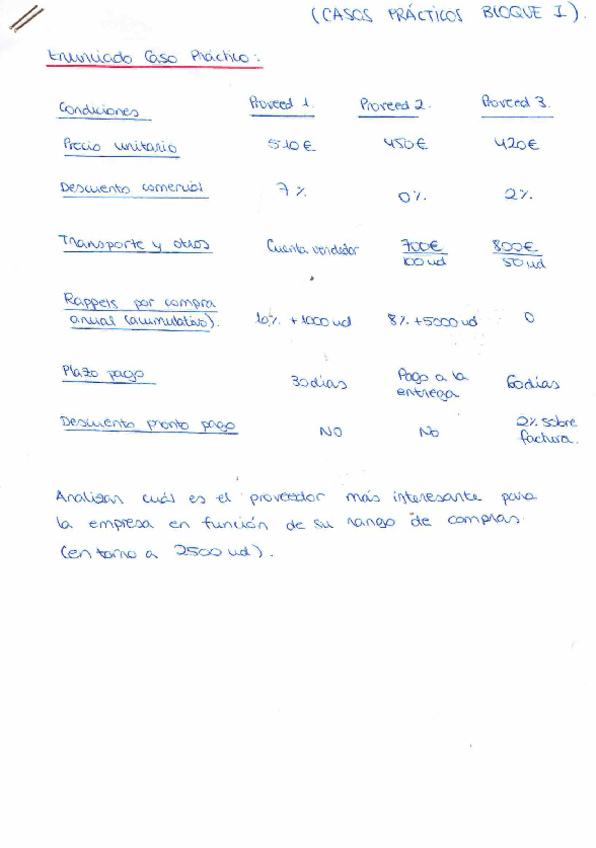 (CASOS PRÁCTICOS BLOQUE I).
Enunciado Caso Práctico:
Condiciones Proveed 1. Proveed 2. Proveed 3.
Precio unitario 510€ 450€ 420€
Descuento comercial 7% 0% 2%
Transporte y otros Cuenta vendedor 700€ 800€
100 ud 50 ud
Rappels por compra
anual (acumulativo). 10% +1000 ud 8% +5000 ud 0
Plazo pago 30 días Pago a la 60 días
entrega
Descuento pronto pago NO No 2% sobre
factura.
Analizar cuál es el proveedor más interesante para
la empresa en función de su rango de compras
(en torno a 2500 ud).